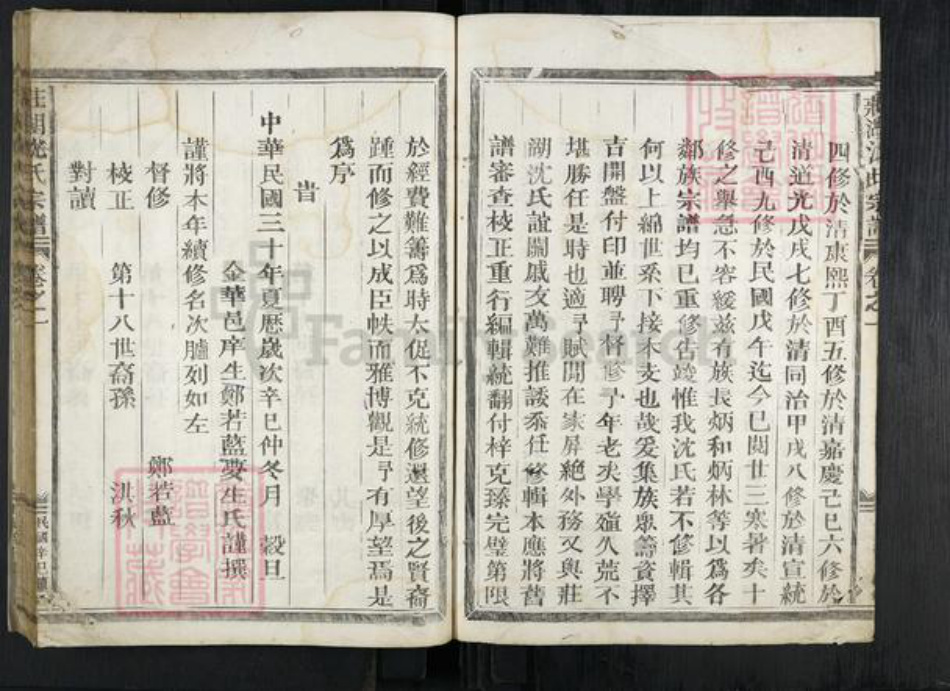 四修於清康熙丁酉五修於清嘉慶己巳六修於
清道光戊戌七修於清同治甲戌八修於清宣統
己酉九修於民國戊午迄今已閱廿三寒暑矣十
修之舉急不容緩茲有族長炳和炳林等以為各
鄰族宗譜均已重修告竣惟我沈氏若不修輯其
何以上綿世系下接本支也哉爰集族眾籌資擇
吉開盤付印並聘予督修予年老矣學殖久荒不
堪勝任是時也適予賦閒在家屏絕外務又與莊
湖沈氏誼關戚友萬難推諉忝任修輯本應將舊
譜審查校正重行編輯統翻付梓克臻完璧第限
於經費難籌爲時太促不克統修還望後之賢裔
踵而修之以成巨帙而雅博觀是予有厚望焉是
爲序
旹
中華民國三十年夏歷歲次辛巳仲冬月 穀旦
金華邑庠生鄭若藍夢生氏謹撰
謹將本年續修名次臚列如左
督修 鄭若藍
校正 第十八世裔孫 洪秋
對讀
莊湖沈氏宗譜 卷之一
民國辛巳續
FamilySearch